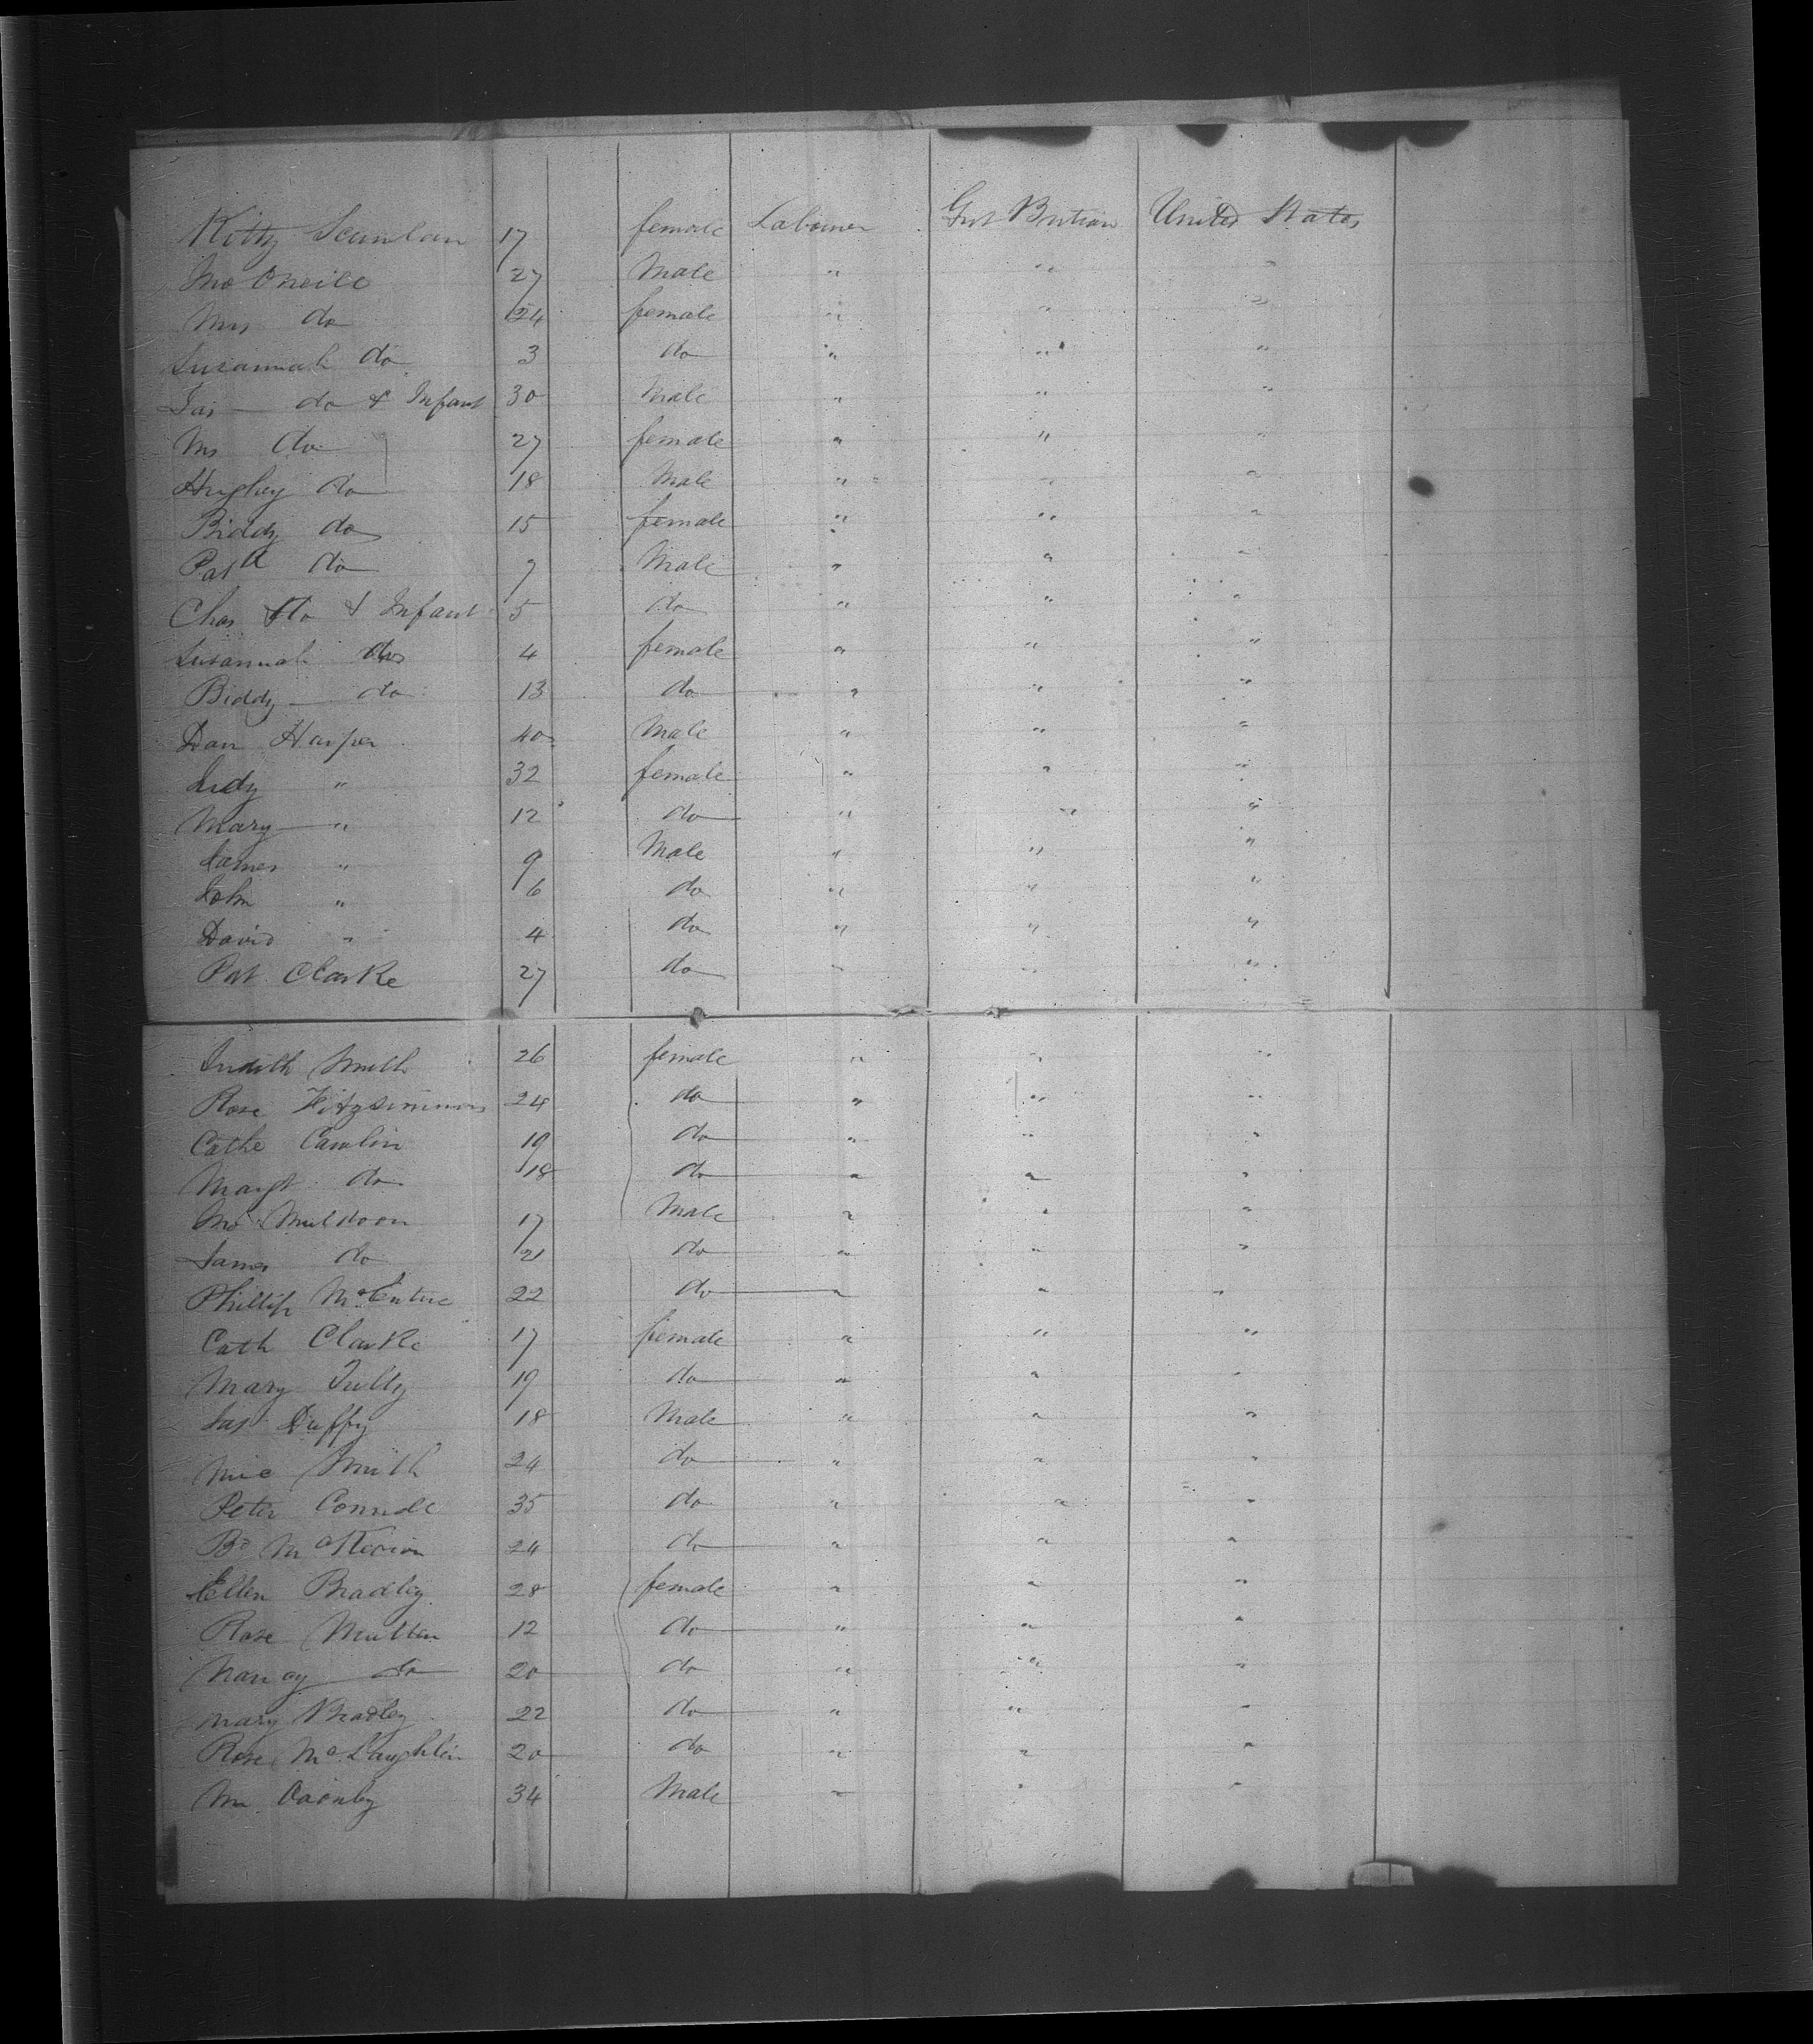 Kitty Scanlan 17 female Labourer Grt Britian United States
Jno Oneill 27 Male " " "
Mrs do 24 female " " "
Susannah do 3 do " " "
Jas do & Infant 30 Male " " "
Mrs do 27 female " " "
Hughey do 18 Male " " "
Biddy do 15 female " " "
Patk do 7 Male " " "
Chas do & Infant 5 do " " "
Susannah do 4 female " " "
Biddy do 13 do " " "
Dan Harper 40 Male " " "
Judy " 32 female " " "
Mary " 12 do " " "
James " 9 Male " " "
John " 6 do " " "
David " 4 do " " "
Pat Clarke 27 do " " "
Judith Smith 26 female " " "
Rose Fitzsimmons 24 do " " "
Cathe Carolin 19 do " " "
Margt do 18 do " " "
Jno Muldoon 17 Male " " "
James do 21 do " " "
Phillip McEntire 22 do " " "
Cath Clarke 17 female " " "
Mary Tully 19 do " " "
Jas Duffy 18 Male " " "
Mic Smith 24 do " " "
Peter Connole 35 do " " "
Bd 24 do " " "
Ellen Bradley 28 female " " "
Rose Mullen 12 do " " "
Nancy do 20 do " " "
Mary Bradley 22 do " " "
Rose McLaughlin 20 do " " "
34 Male " " "